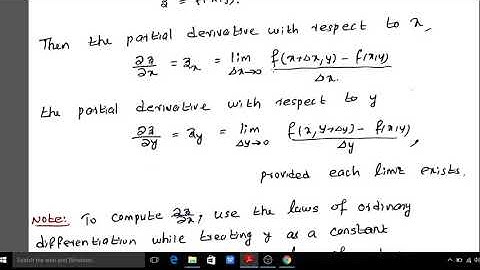 z = f(x,y).
Then the partial derivative with respect to x,
∂z/∂x = zx = lim Δx→0 f(x+Δx,y) - f(x,y) / Δx
the partial derivative with respect to y
∂z/∂y = zy = lim Δy→0 f(x,y+Δy) - f(x,y) / Δy ,
provided each limit exists.
Note: To compute ∂z/∂x, use the laws of ordinary
differentiation while treating y as a constant
Search the web and Windows